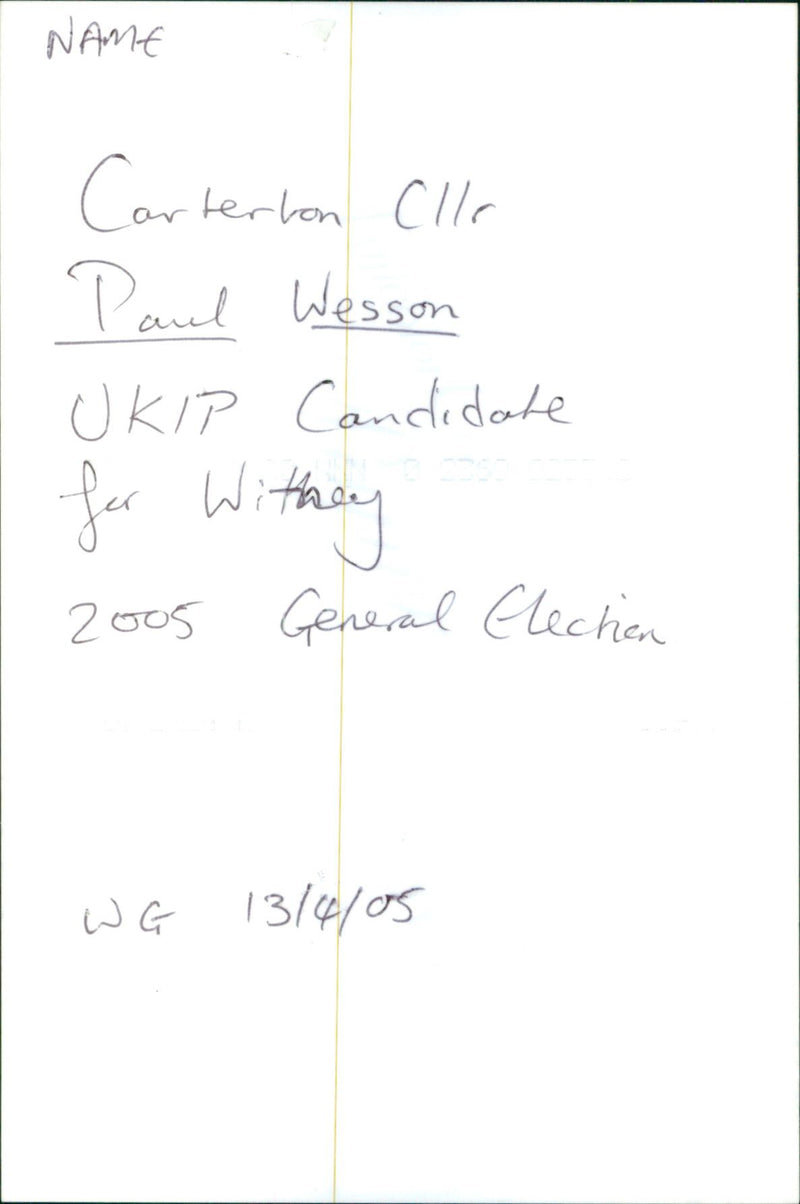 NAME
Carterton Cllr
Paul Wesson
UKIP Candidate
for Witney
2005 General Election
WG 13/4/05